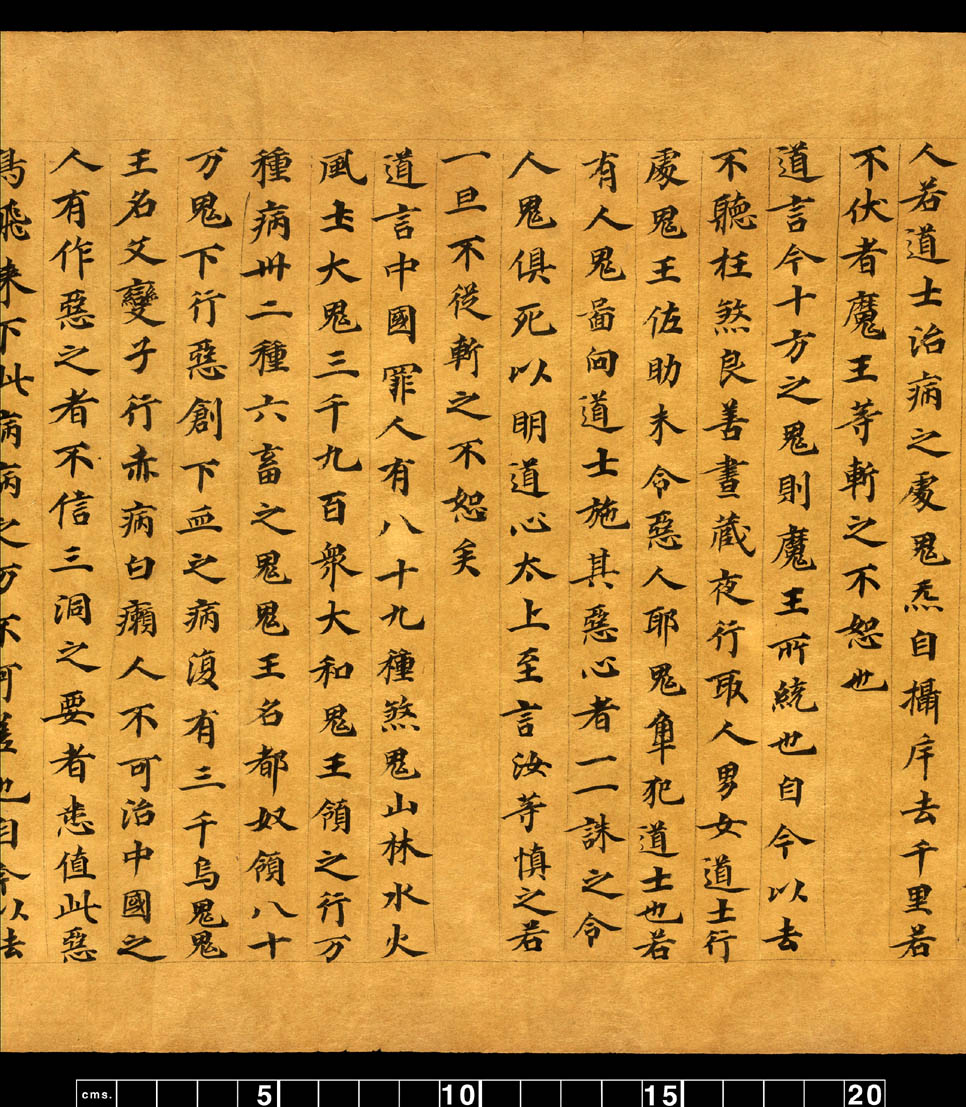 人若道士治病之處鬼炁自攝斥去千里若
不伏者魔王等斬之不恕也
道言今十方之鬼則魔王所統也自今以去
不聽枉煞良善晝藏夜行取人男女道士行
處鬼王佐助未令惡人耶鬼牽犯道士也若
有人鬼啚向道士施其惡心者一一誅之令
人鬼俱死以明道心太上至言汝等慎之若
一旦不從斬之不恕矣
道言中國罪人有八十九種煞鬼山林水火
風土大鬼三千九百衆大和鬼王領之行万
種病卅二種六畜之鬼鬼王名都奴領八十
万鬼下行惡創下血之病復有三千烏鬼鬼
王名父變子行赤病白癩人不可治中國之
人有作惡之者不信三洞之要者悉值此惡
鳥飛来下此病病之万不可差也自今以去
cms. 5 10 15 20